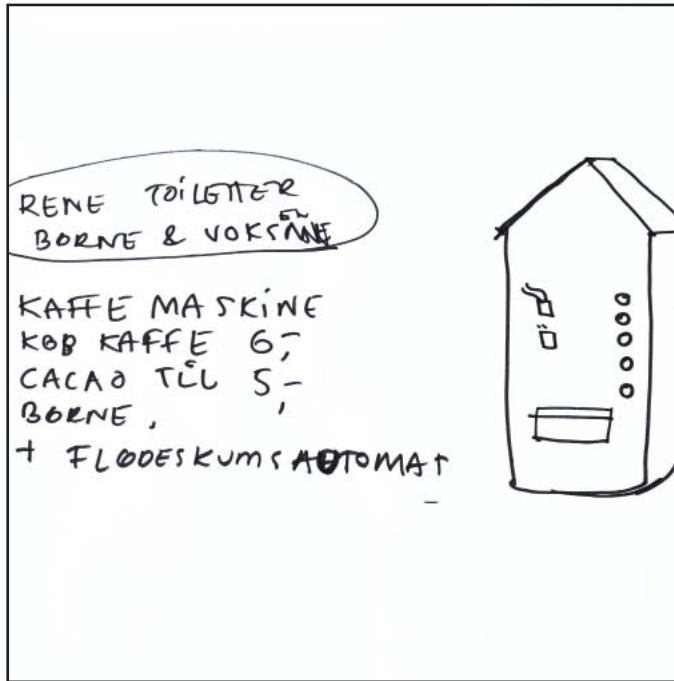 RENE TOILETTER
BØRNE & VOKSENE
KAFFE MASKINE
KØB KAFFE 6,-
CACAO TIL 5,-
BØRNE,
+ FLØDESKUMSAUTOMAT